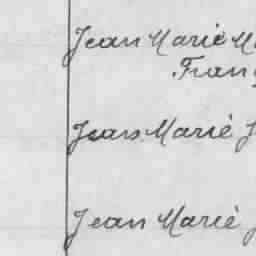 Jean Marie M
Fran
Jean Marie J
Jean Marie J